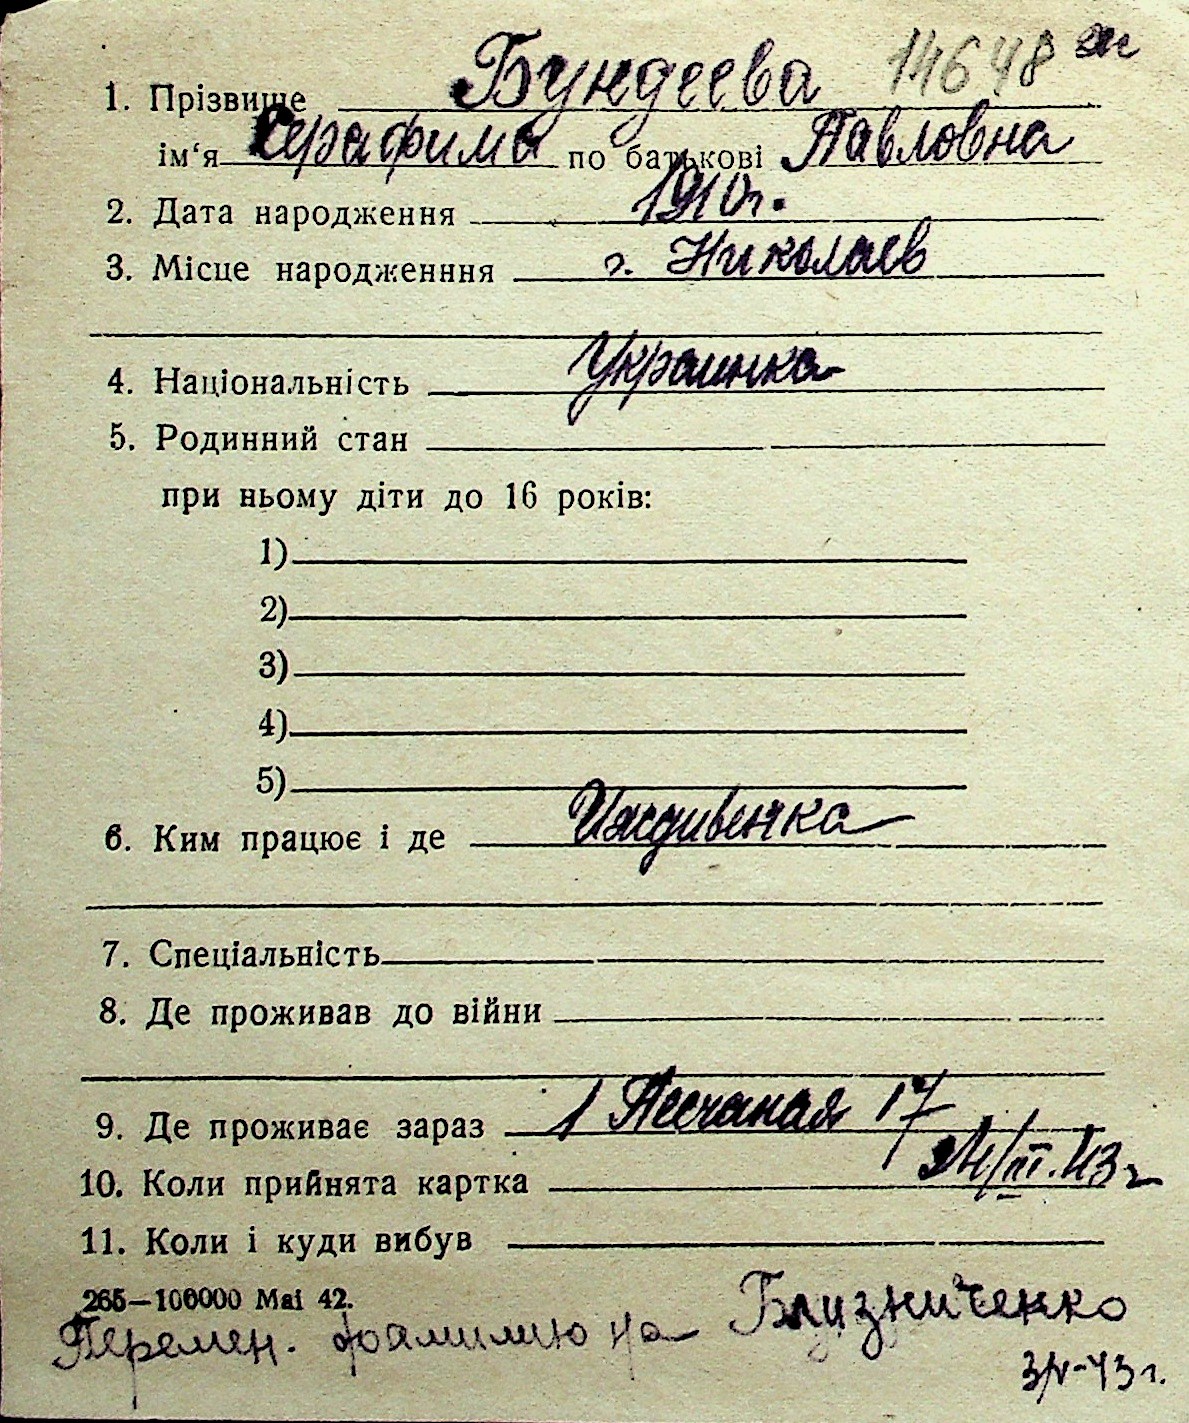 1. Прізвище Бундеева 14648
ім'я Серафима по батькові Павловна
2. Дата народження 1910 г.
3. Місце народженння г. Николаев
4. Національність Украинка
5. Родинний стан
при ньому діти до 16 років:
1)
2)
3)
4)
5)
6. Ким працює і де Иждивенка
7. Спеціальність
8. Де проживав до війни
9. Де проживає зараз 1 Песчаная 17
10. Коли прийнята картка 24/III.43 г
11. Коли і куди вибув
265—100000 Маі 42.
Перемен. фамилию на Близниченко
3/V-43 г.